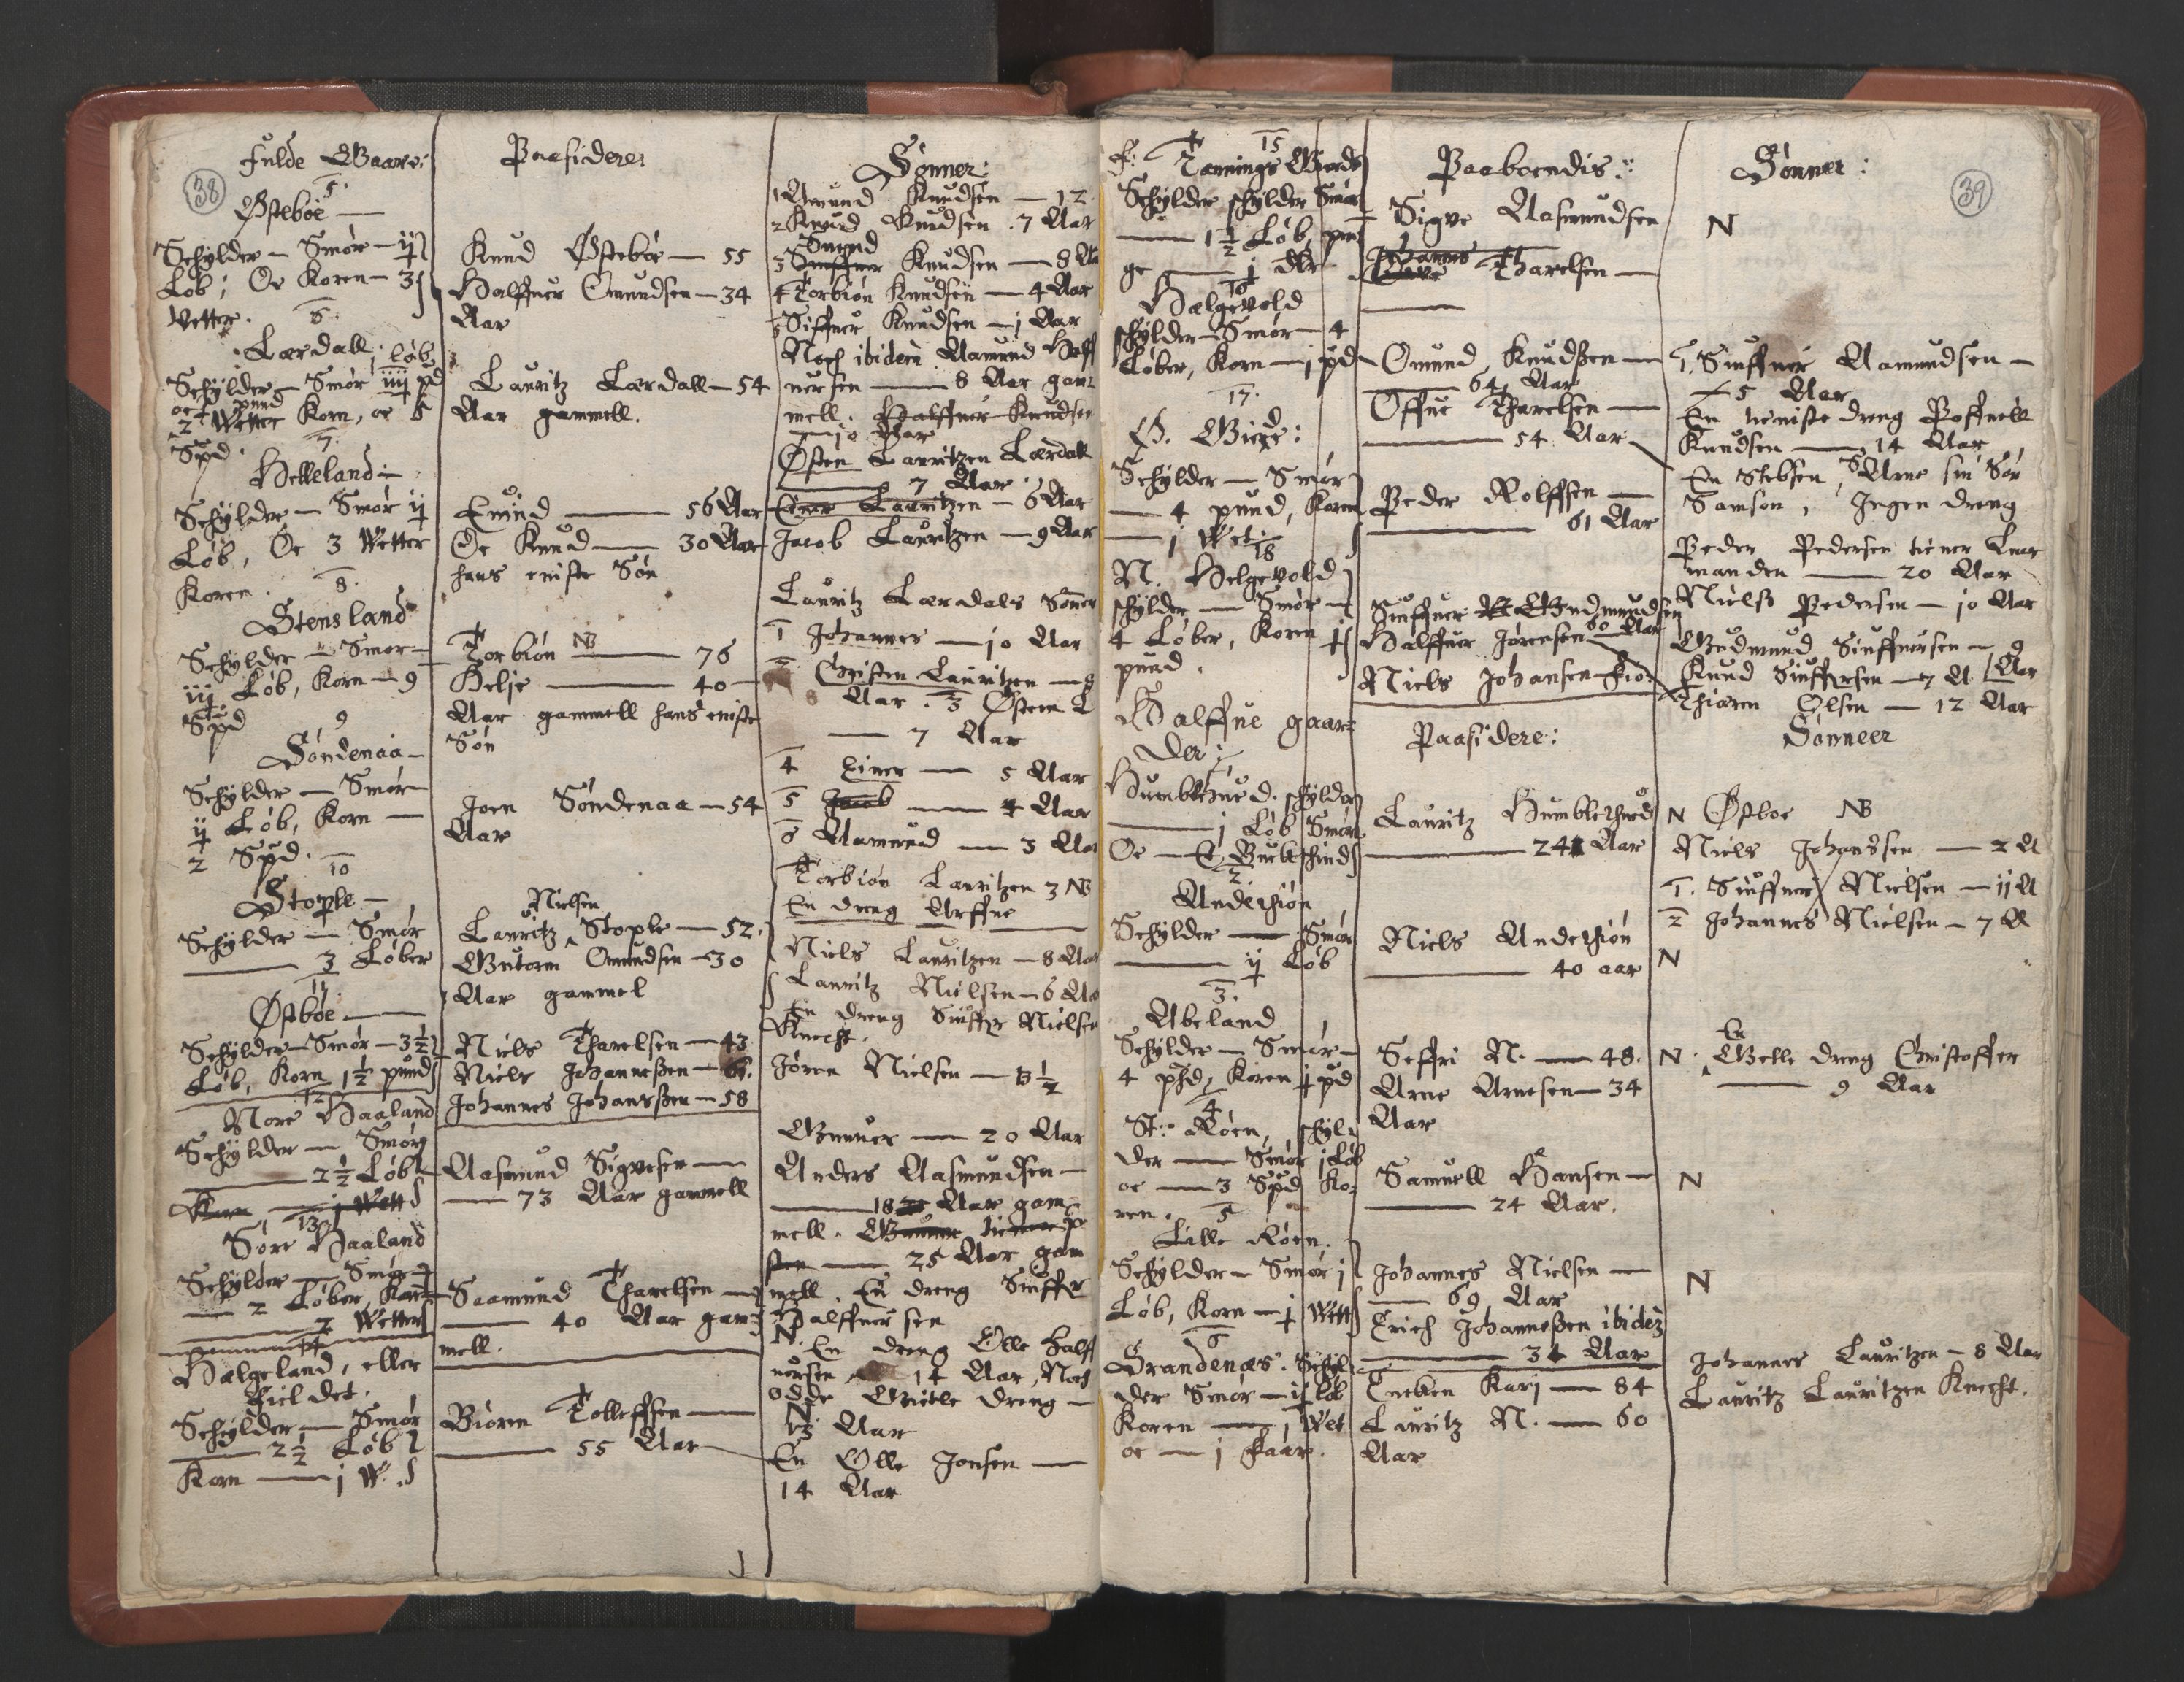 38
fulde Gaare:
5.
Østeböe —
Schÿlder — Smör — ij
Löb; Oc Koren — 3
Vetter.
6.
Lærdall
Schÿlder — Smör iiij löb
pund
2 Wetter Korn, oc
Spd.
7.
Helleland —
Schÿlder — Smör ij
Löb, Oc 3 Wetter
Koren.
8.
Stensland
Schÿlder — Smör —
iij Löb, Korn — 9
Spd
9
Söndenaa —
Schÿlder — Smör —
ij Löb, Korn —
2 Spd.
10
Stople —
Schÿlder — Smör
3 Löber
11.
Østböe —
Schÿlder — Smör — 3½
Löb, Korn 1½ pund
12
Nore Haaland
Schÿlder — Smör
2½ Löb
Korn — j Wett
13
Söre Haaland
Schÿlder — Smör
— 2 Löber, Korn
2 Wetter
14
Hælgeland, eller
Fieldet.
Schÿlder — Smör
2½ Löb
Korn — j W.
Paasidere:
Knud Østeböe — 55
Halffuer Omundsen — 34
Aar
Lauritz Lærdall — 54
Aar gammell.
Emund — 56 Aar
Oc Knud — 30 Aar
hans eniste Sön
Torbiön NB — 76
Helje — 40
Aar gammell hans eniste
Sön
Joen Söndenaa — 54
Aar
Nielsen
Lauritz Stople — 52.
Gutorm Omundsen — 30
Aar gammel
Niels Tharelsen — 43
Niels Johanneßen — 61.
Johannes Johansßen — 58
Aasmund Sigvesen —
— 73 Aar gammell
Saamund Tharelsen —
— 40 Aar gam
mell.
Biörn Tolleffsen —
55 Aar
Sönner:
1 Amund Knudsen — 12
2 Knud Knudsen . 7 Aar
Omund
3 Siuffuer Knudsen — 8 Aa
4 Torbiön Knudsen — 4 Aar
5 Siffuer Knudsen — j Aar
Noch ibidem Aamund Halff
uersen — 8 Aar gam
mell. Halffuer Knudsen
— 10 Aar
Østen Lauritzen Lærdall
7 Aar
Einer Lauritzen — 6 Aar
Jacob Lauritzen — 9 Aar
Lauritz Lærdals Sönner
1 Johannes — 10 Aar
2 Christen Lauritzen — 8
Aar. 3 Østen L
— 7 Aar
4 Einer — 5 Aar
5 Jacob — 4 Aar
6 Aamund — 3 Aa
Torbiön Lauritzen 3 NB
En dreng Arffue
Niels Lauritzen — 8 Aa
Lauritz Nielsen — 6 Aa
En dreng Siuffer Nielsen
Knecht.
Jören Nielsen — 8½
Gunner — 20 Aar
Anders Aasmundsen —
18 Aar gam
mell.
— 25 Aar gam
mell. En dreng Siuffer
Halffuersen
N. En dreng Olle Halff
uersen 14 Aar, Noch
Odde Gietle dreng —
N. 13 Aar
En Olle Jonsen —
14 Aar
39
15
Tannings Gaards
Schÿlder schÿlder Smör
— 1½ Löb, pen
ge — j dlr
16
Hælgevold
schÿlder — Smör — 4
Löber, Korn — j pd
17.
Ø. Gieze:
Schÿlder — Smör
— 4 pund, Korn
— j Wet:
18
N. Helgevold
schÿlder — Smör —
4 Löber, Korn j
pund.
Halffue gaar
der:
1
Humblesued. schÿlder
j Löb Smör
Oc — E Buckskind
2
Andersiön
Schÿlder — Smör
ij Löb
3.
Abeland
Schÿlder — Smör —
4 phd, Koren j pd
4
St: Röen, schÿl
der — Smör j Löb
oc — 3 Spd Ko
ren.
5
Lille Röen.
Schÿlder — Smör j
Löb, Korn — j Wett
6
Strandenæs. Schÿl
der Smör — j Löb
Koren — 1 Wet
oc — 1 Faar.
Paaboendis:
Sigve Aasmundsen
Tharelsen —
Omund Knudßen —
64 Aar
Offue Tharelsen —
54. Aar
Peder Rolffsen —
61 Aar
Siuffuer Gudmundsen
60 Aar
Halffuer Jörensen
Niels Johansen
Paasidere:
Lauritz Humblesued
24 Aar
Niels Andersiön
40 aar
Seffri N. — 48.
Arne Arnesen — 34
Aar
Samuell Hansen —
24 Aar.
Johannes Nielsen —
— 69 Aar
Erich Johanneßen ibidem
34 Aar
Encken Karj — 84
Lauritz N. — 60
Aar
Sönner:
N
1. Siuffuer Aamundsen —
5 Aar
En tieniste dreng Poffuell
Knudsen — 14 Aar
En Stebsen, Arne sin Sön
Samson, Ingen dreng
Peder Pedersen tiener Lens
manden — 20 Aar
Nielß Pedersen — 10 Aar
Gudmund Siuffuersen — 9
Aar
Knud Siuffersen — 7 A
Thiören Olsen — 12 Aar
Sönneer
N Østboe NB
Niels Johansen — 2 A
1. Siuffuer Nielsen — ij A
2 Johannes Nielsen — 7 A
N
N. En Gille dreng Cristoffer
9 Aar
N
N
Johannes Lauritzen — 8 Aar
Lauritz Lauritzen Knecht.